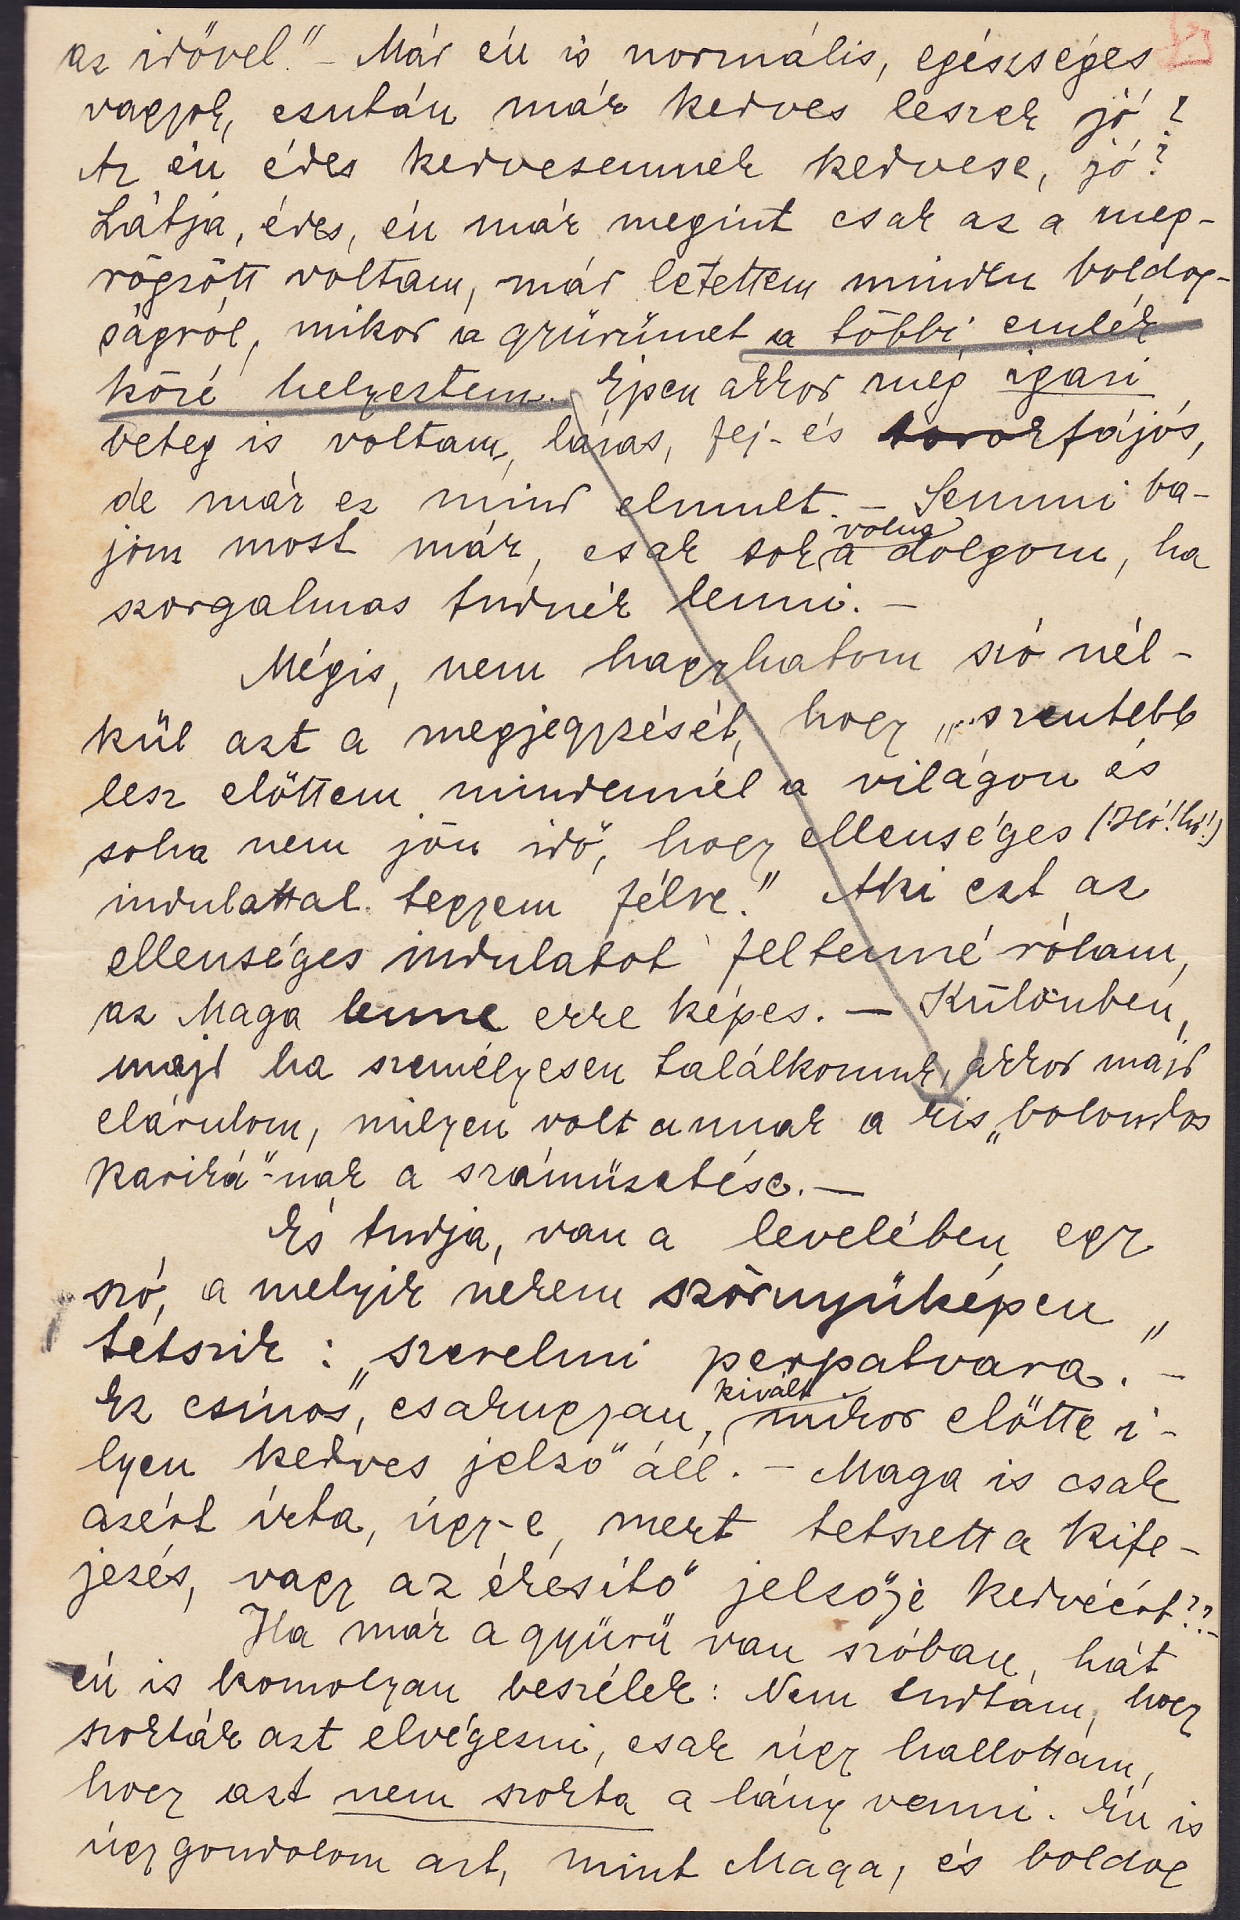 az idővel." – Már én is normális, egészséges
vagyok, ezután már kedves leszek jó?
Az én édes kedvesemnek kedvese, jó?
Látja, édes, én már megint csak az a meg-
rögzött voltam, már letettem minden boldog-
ságról, mikor a gyűrűmet a többi emlék
közé helyeztem. Épen akkor még igazi
beteg is voltam, lázas, fej- és torokfájós,
de már ez mind elmult. – Semmi ba-
jom most már, csak sok volna a dolgom, ha
szorgalmas tudnék lenni. –
Mégis, nem hagyhatom szó nél-
kül azt a megjegyzését, hogy „szentebb
lesz előttem mindennél a világon és
soha nem jön idő, hogy ellenséges (!Hó!hó!)
indulattal tegyem félre." Aki ezt az
ellenséges indulatot feltenné rólam,
az Maga lenne erre képes. – Különben,
majd ha személyesen találkozunk, akkor majd
elárulom, milyen volt annak a kis „bolondos
karika"-nak a száműzetése. –
És tudja, van a levelében egy
szó, a melyik nekem szörnyűképen
tetszik: „szerelmi perpatvara." –
Ez csinos, csakugyan, kivált mikor előtte i-
lyen kedves jelző áll. – Maga is csak
azért írta, úgy-e, mert tetszett a kife-
jezés, vagy az édesítő jelzője kedvéért??
Ha már a gyűrű van szóban, hát
én is komolyan beszélek: Nem tudtam, hogy
szokták azt elvégezni, csak úgy hallottam,
hogy azt nem szokta a lány venni. Én is
úgy gondolom azt, mint Maga, és boldog